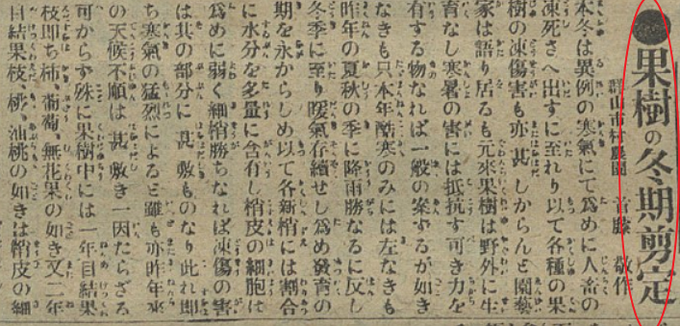 ●果樹の冬期剪定
群山市村農園 首藤敬作
本冬は異例の寒氣にて爲めに人畜の
凍死さへ出すに至れり以て各種の果
樹の凍傷害も亦甚しからんと園藝
家は語り居るも元來果樹は野外に生
育なし寒暑の害には抵抗す可き力を
有する物なれば一般の案ずるが如き
なきも只本年酷寒のみには左なきも
昨年の夏秋の季に降雨勝なるに反し
冬季に至り暖氣存續せし爲め發育の
期を永からしめ以て各新梢には割合
に水分を多量に含有し梢皮の細胞は
爲めに弱く細稍勝ちなれば凍傷の害
は其の部分に甚敷ものなり此れ即
ち寒氣の猛烈によると雖も亦昨年來
の天候不順は甚敷き一因たらざる
可からず殊に果樹中には一年目結果
枝即ち柿、葡萄、無花果の如き又二年
目結果枝、桃、油桃の如きは梢皮の細